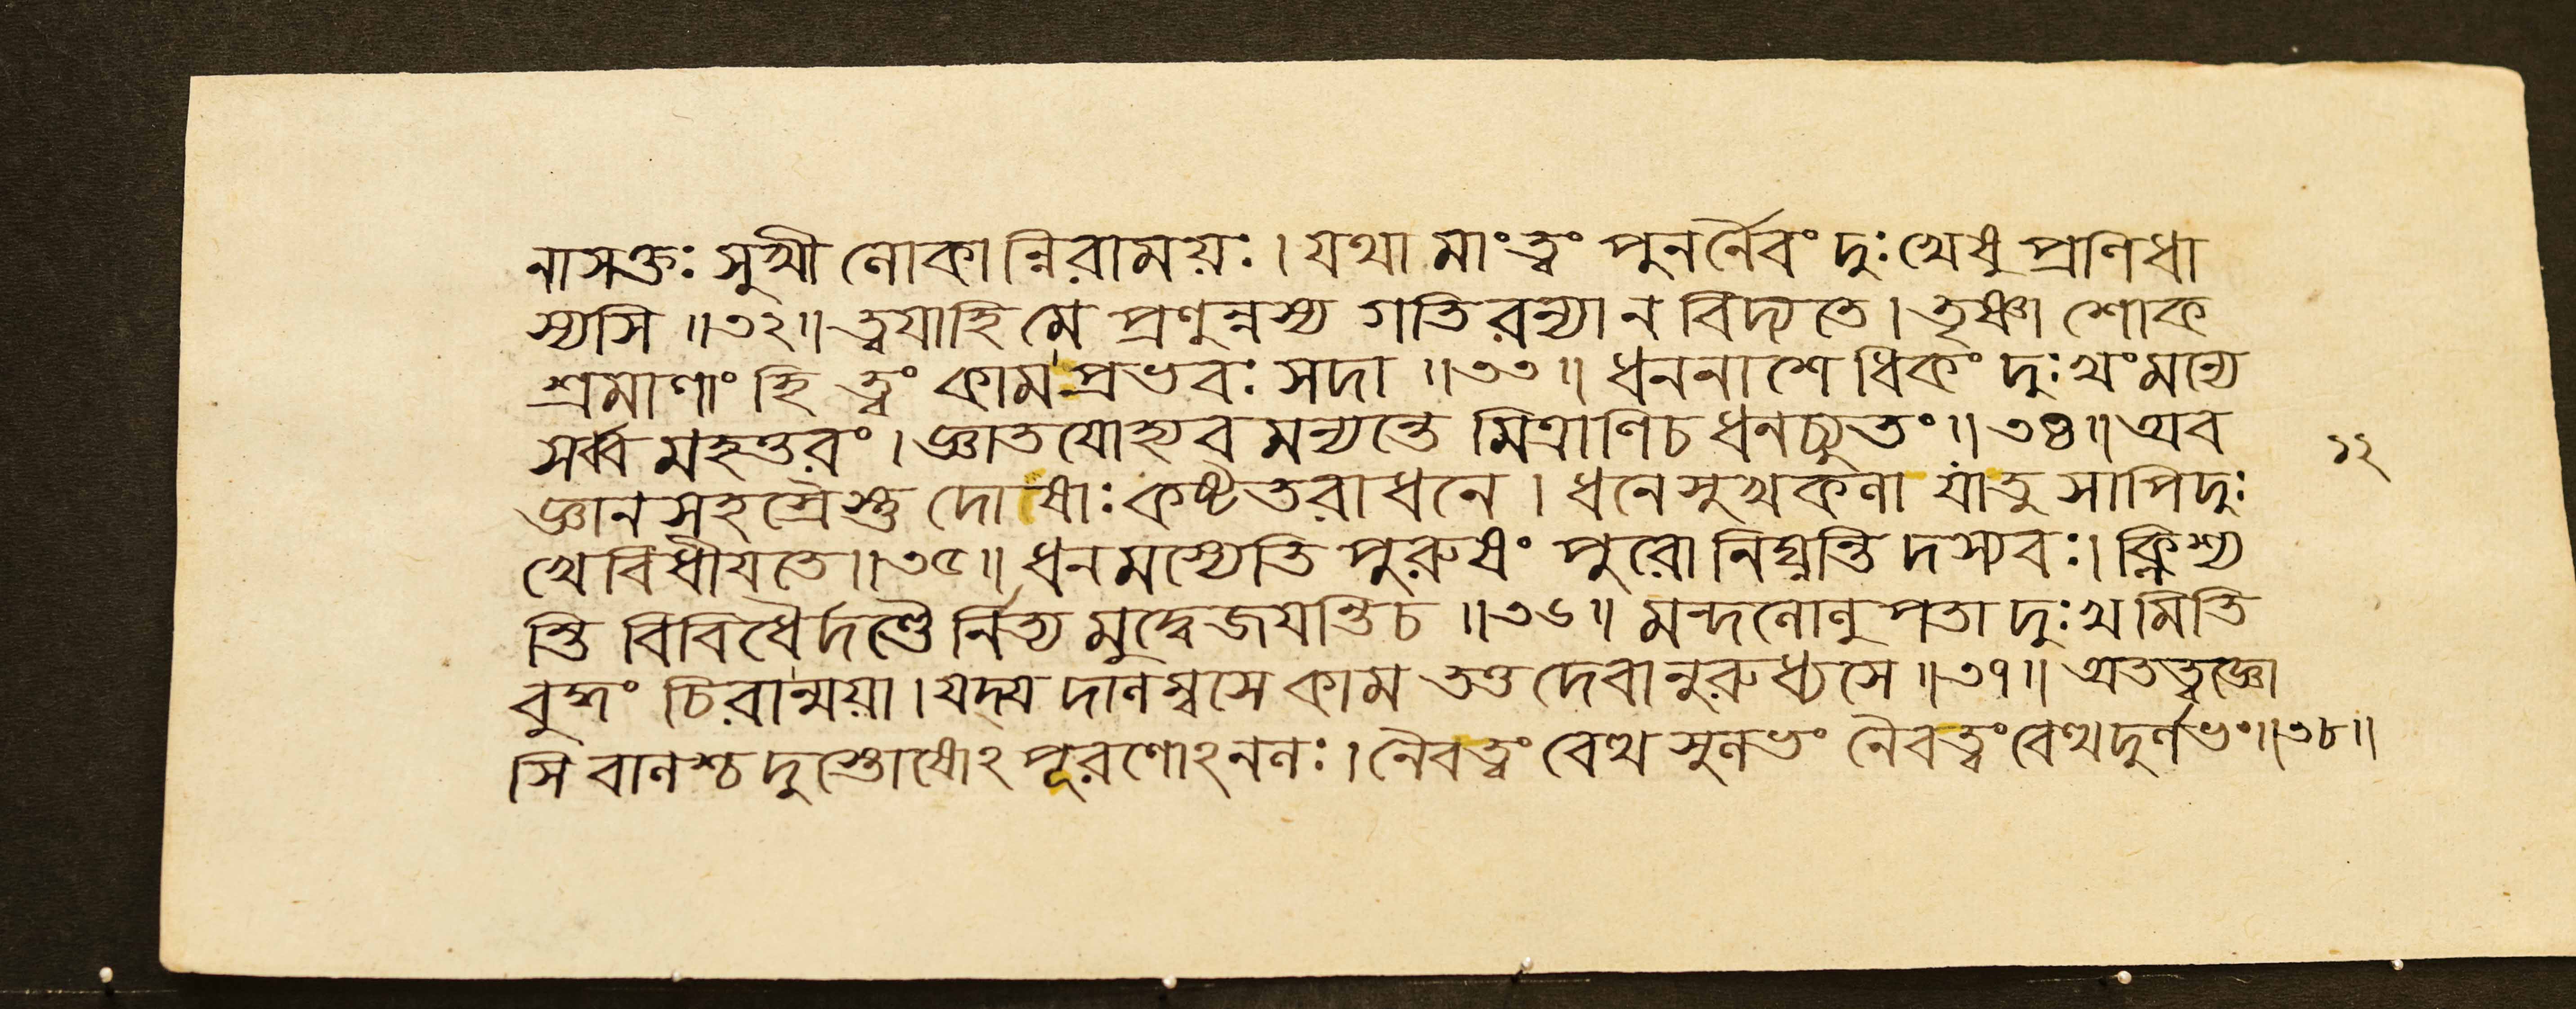 নাসক্তঃ সুখী লোকান্নিরাময়ঃ। যথা মাংত্বং পুনর্নৈবং দুঃখেষু প্রণিধা
স্যসি ॥৩২॥ ত্বযাহি মে প্রণুন্নস্য গতি রন্যা ন বিদ্যতে। তৃষ্ণা শোক
শ্রমাণাং হি ত্বং কাম প্রভবঃ সদা ॥৩৩॥ ধননাশেধিকং দুঃখং মন্যে
সর্ব্ব মহত্তরং। জ্ঞাতযোহ্যব মন্যন্তে মিত্রাণিচ ধনচ্যুতং॥৩৪॥ অব
জ্ঞানসহস্রৈস্তু দোষাঃ কষ্টতরা ধনে। ধনেসুখকলা যাতু সাপিদুঃ
খেবিধীযতে॥৩৫॥ ধনমস্যেতি পুরুষং পুরো নিঘ্নন্তি দস্যবঃ। ক্লিশ্য
ন্তি বিবিধৈর্দণ্ডৈ র্নিত্য মুদ্বেজযন্তিচ ॥৩৬॥ মন্দলোলুপতা দুঃখ মিতি
বুদ্ধং চিরান্ময়া। যদ্যদালম্বসে কাম তত্তদেবানুরুধ্যসে ॥৩৭॥ অতত্ত্বজ্ঞো
সি বালশ্চ দুস্তোষোঽপূরণোঽনলঃ। নৈবত্বং বেত্থ সুলভং নৈবত্বংবেত্থ দুর্লভং॥৩৮॥
১২